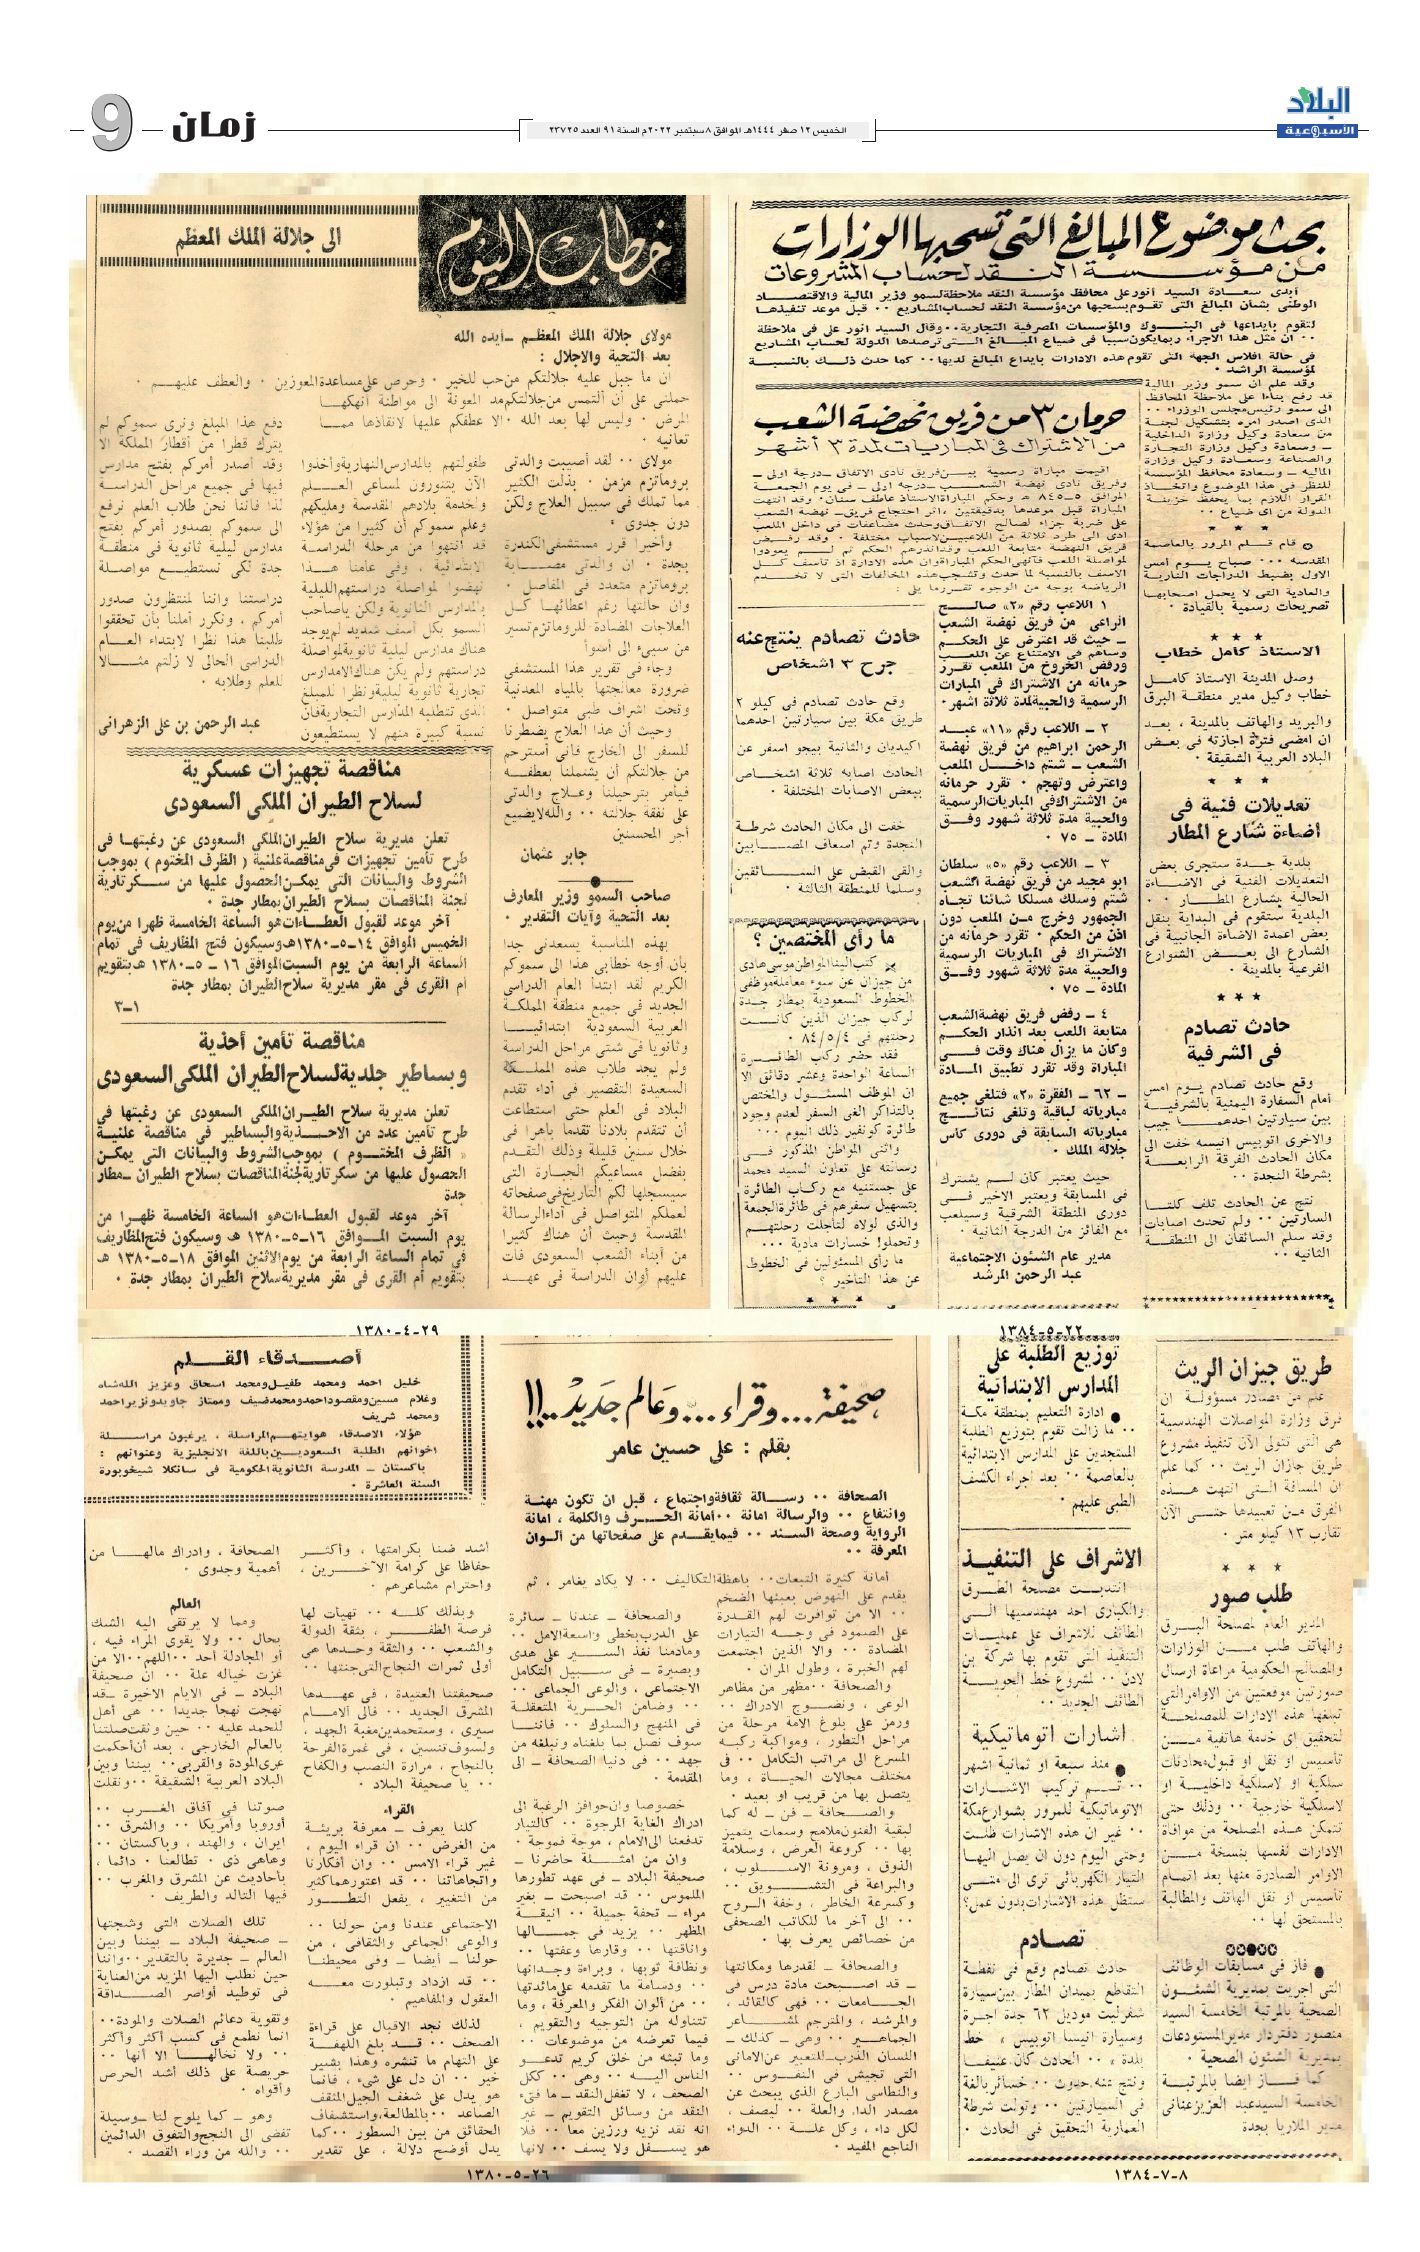 البلاد
الأسبوعية
الخميس ١٢ صفر ١٤٤٤هـ الموافق ٨ سبتمبر ٢٠٢٢م السنة ٩١ العدد ٢٣٧٢٥
زمان
9
بحث موضوع المبالغ التي تسحبها الوزارات
من مؤسسة النقد لحساب المشروعات
أبدى سعادة السيد أنور على محافظ مؤسسة النقد ملاحظة لسمو وزير المالية والاقتصاد
الوطني بشأن المبالغ التى تقوم بسحبها من مؤسسة النقد لحساب المشاريع ٠٠ قبل موعد تنفيذها
لتقوم بايداعها فى البنوك والمؤسسات المصرفية التجارية ٠٠ وقال السيد انور على فى ملاحظة
٠٠ ان مثل هذا الاجراء ربما يكون سببا فى ضياع المبالغ التى ترصدها الدولة لحساب المشاريع
فى حالة افلاس الجهة التى تقوم هذه الادارات بايداع المبالغ لديها ٠٠ كما حدث ذلك بالنسبة
لمؤسسة الراشد ٠
وقد علم ان سمو وزير المالية
قد رفع بناءا على ملاحظة المحافظ
الى سمو رئيس مجلس الوزراء ٠٠
الذى اصدر أمره بتشكيل لجنة
من سعادة وكيل وزارة الداخلية
ـ وسعادة وكيل وزارة التجارة
والصناعة وسعادة وكيل وزارة
المالية ـ وسعادة محافظ المؤسسة
للنظر فى هذا الموضوع واتخاذ
القرار اللازم بما يحفظ خزينة
الدولة من اى ضياع ٠٠
★ ★ ★
قام قلم المرور بالعاصمة
المقدسة ٠٠٠ صباح يوم امس
الاول بضبط الدراجات النارية
والعادية التى لا يحمل اصحابها
تصريحات رسمية بالقيادة ٠
★ ★ ★
الاستاذ كامل خطاب
وصل المدينة الاستاذ كامل
خطاب وكيل مدير منطقة البرق
والبريد والهاتف بالمدينة ، بعد
ان امضى فترة اجازته فى بعض
البلاد العربية الشقيقة ٠
★ ★ ★
تعديلات فنية فى
أضاءة شارع المطار
بلدية جدة ستجرى بعض
التعديلات الفنية فى الاضاءة
الحالية بشارع المطار ٠ ٠
البلدية ستقوم فى البداية بنقل
بعض اعمدة الاضاءة الجانبية فى
الشارع الى بعض الشوارع
الفرعية بالمدينة ٠
★ ★ ★
حادث تصادم
فى الشرفية
وقع حادث تصادم يوم امس
أمام السفارة اليمنية بالشرفية
بين سيارتين احدهما جيب
والاخرى اتوبيس انيسه خفت الى
مكان الحادث الفرقة الرابعة
بشرطة النجدة ٠٠
نتج عن الحادث تلف كلتا
السارتين ٠٠ ولم تحدث اصابات
وقد سلم السائقان الى المنطقة
الثانية ٠٠
حرمان ٣ من فريق نهضة الشعب
من الاشتراك فى المباريات لمدة ٣ أشهر
اقيمت مباراة رسمية بين فريق نادى الاتفاق ـ درجة اولى ـ
وفريق نادى نهضة الشعب ـ درجة اولى ـ فى يوم الجمعة
الموافق ٥ـ٥ـ٨٤ هـ وحكم المباراة الاستاذ عاطف سنان ٠ وقد انتهت
المباراة قبل موعدها بدقيقتين ، اثر احتجاج فريق ـ نهضة الشعب
على ضربة جزاء لصالح الاتفاق وحدث مضاعفات فى داخل الملعب
أدى الى طرد ثلاثة من اللاعبين لاسباب مختلفة ٠ وقد رفض
فريق النهضة متابعة اللعب وقد انذرهم الحكم ثم لم يعودوا
لمواصلة اللعب فأنهى الحكم المباراة وان هذه الادارة اذ تأسف كل
الاسف بالنسبة لما حدث وتشجب هذه المخالفات التى لا تخدم
الرياضة بوجه من الوجوه تقرر ما يلى :
١ اللاعب رقم «٢» صالح
الراعى من فريق نهضة الشعب
ـ حيث قد اعترض على الحكم
وساهم فى الامتناع عن اللعب
ورفض الخروج من الملعب تقرر
حرمانه من الاشتراك فى المبارات
الرسمية والحبية لمدة ثلاثة اشهر٠
٢ ـ اللاعب رقم «١١» عبد
الرحمن ابراهيم من فريق نهضة
الشعب ـ شتم داخل الملعب
واعترض وتهجم ٠ تقرر حرمانه
من الاشتراك فى المباريات الرسمية
والحبية مدة ثلاثة شهور وفق
المادة ـ ٧٥ ٠
٣ ـ اللاعب رقم «٥» سلطان
ابو مجيد من فريق نهضة الشعب
شتم وسلك مسلكا شائنا تجاه
الجمهور وخرج من الملعب دون
اذن من الحكم ٠ تقرر حرمانه من
الاشتراك فى المباريات الرسمية
والحبية مدة ثلاثة شهور وفق
المادة ـ ٧٥ ٠
٤ ـ رفض فريق نهضة الشعب
متابعة اللعب بعد انذار الحكم
وكان ما يزال هناك وقت فى
المباراة وقد تقرر تطبيق المادة
ـ ٦٢ ـ الفقرة «٢» فتلغى جميع
مبارياته لباقية وتلغى نتائج
مبارياته السابقة فى دورى كأس
جلالة الملك ٠
حيث يعتبر كان لم يشترك
فى المسابقة ويعتبر الاخير فى
دورى المنطقة الشرقية وسيلعب
مع الفائز من الدرجة الثانية ٠
مدير عام الشئون الاجتماعية
عبد الرحمن المرشد
حادث تصادم ينتج عنه
جرح ٣ اشخاص
وقع حادث تصادم فى كيلو ٢
طريق مكة بين سيارتين احدهما
اكيديان والثانية بيجو اسفر عن
الحادث اصابه ثلاثة اشخاص
ببعض الاصابات المختلفة ٠
خفت الى مكان الحادث شرطة
النجدة وتم اسعاف المصابين
والقى القبض على السائقين
وسلما للمنطقة الثالثة ٠
ما رأى المختصين ؟
كتب الينا المواطن موسى هادى
من جيزان عن سوء معاملة موظفى
الخطوط السعودية بمطار جدة
لركاب جيزان الذين كانت
رحلتهم فى ٨٤/٥/٤
فقد حضر ركاب الطائرة
الساعة الواحدة وعشر دقائق الا
ان الموظف المسئول والمختص
بالتذاكر الغى السفر لعدم وجود
طائرة كونفير ذلك اليوم ٠٠٠
واثنى المواطن المذكور فى
رسالته على تعاون السيد محمد
على جستنيه مع ركاب الطائرة
بتسهيل سفرهم فى طائرة الجمعة
والذى لولاه لتأجلت رحلتهم
وتحملوا خسارات مادية ٠٠٠
ما رأى المسئولين فى الخطوط
عن هذا التأخير ؟
★ ★ ★
١٣٨٤-٥-٢٢
خطاب اليوم
الى جلالة الملك المعظم
مولاى جلالة الملك المعظم ـ أيده الله
بعد التحية والاجلال :
ان ما جبل عليه جلالتكم من حب للخير ٠ وحرص على مساعدة المعوزين ٠ والعطف عليهم ٠
حملنى على أن ألتمس من جلالتكم مد المعونة الى مواطنة أنهكها
المرض ٠ وليس لها بعد الله ٠ الا عطفكم عليها لانقاذها مما
تعانيه ٠
مولاى ٠٠ لقد أصيبت والدتى
بروماتزم مزمن ٠ بذلت الكثير
مما تملك فى سبيل العلاج ولكن
دون جدوى ٠
وأخيرا قرر مستشفى الكندرة
بجدة ٠ ان والدتى مصابة
بروماتزم متعدد فى المفاصل ٠
وان حالتها رغم اعطائها كل
العلاجات المضادة للروماتزم تسير
من سيىء الى أسوأ
وجاء فى تقرير هذا المستشفى
ضرورة معالجتها بالمياه المعدنية
وتحت اشراف طبى متواصل ٠
وحيث أن هذا العلاج يضطرنا
للسفر الى الخارج فانى أسترحم
من جلالتكم أن يشملنا بعطفه
فيأمر بترحيلنا وعلاج والدتى
على نفقة جلالته ٠٠ والله لا يضيع
أجر المحسنين
جابر عثمان
صاحب السمو وزير المعارف
بعد التحية وآيات التقدير ٠
بهذه المناسبة يسعدنى جدا
بأن أوجه خطابى هذا الى سموكم
الكريم لقد ابتدأ العام الدراسى
الجديد فى جميع منطقة المملكة
العربية السعودية ابتدائيا
وثانويا فى شتى مراحل الدراسة
ولم يجد طلاب هذه المملكة
السعيدة التقصير فى أداء تقدم
البلاد فى العلم حتى استطاعت
أن تتقدم بلادنا تقدما باهرا فى
خلال سنين قليلة وذلك التقدم
بفضل مساعيكم الجبارة التى
سيسجلها لكم التاريخ فى صفحاته
لعملكم المتواصل فى أداء الرسالة
المقدسة وحيث أن هناك كثيرا
من أبناء الشعب السعودى فات
عليهم أوان الدراسة فى عهد
طفولتهم بالمدارس النهارية وأخذوا
الآن يتنورون لمساعى العلم
ولخدمة بلادهم المقدسة ومليكهم
وعلم سموكم أن كثيرا من هؤلاء
قد انتهوا من مرحلة الدراسة
الابتدائية ٠ وفى عامنا هذا
نهضوا لمواصلة دراستهم الليلية
بالمدارس الثانوية ولكن ياصاحب
السمو بكل أسف شديد لم يوجد
هناك مدارس ليلية ثانوية لمواصلة
دراستهم ولم يكن هناك الا مدارس
تجارية ثانوية ليلية ونظرا للمبلغ
الذى تتطلبه المدارس التجارية فان
نسبة كبيرة منهم لا يستطيعون
دفع هذا المبلغ ونرى سموكم لم
يترك قطرا من أقطار المملكة الا
وقد أصدر أمركم بفتح مدارس
فيها فى جميع مراحل الدراسة
لذا فأننا نحن طلاب العلم نرفع
الى سموكم بصدور أمركم بفتح
مدارس ليلية ثانوية فى منطقة
جدة لكى نستطيع مواصلة
دراستنا واننا لمنتظرون صدور
أمركم ٠ ونكرر أملنا بأن تحققوا
طلبنا هذا نظرا لابتداء العام
الدراسى الحالى لا زلتم مثالا
للعلم وطلابه ٠
عبد الرحمن بن على الزهرانى
مناقصة تجهيزات عسكرية
لسلاح الطيران الملكى السعودى
تعلن مديرية سلاح الطيران الملكى السعودى عن رغبتها فى
طرح تأمين تجهيزات فى مناقصة علنية ( الظرف المختوم ) بموجب
الشروط والبيانات التى يمكن الحصول عليها من سكرتارية
لجنة المناقصات بسلاح الطيران بمطار جدة ٠
آخر موعد لقبول العطاءات هو الساعة الخامسة ظهرا من يوم
الخميس الموافق ١٤-٥-١٣٨٠هـ وسيكون فتح المظاريف فى تمام
الساعة الرابعة من يوم السبت الموافق ١٦ - ٥ - ١٣٨٠ هـ بتقويم
أم القرى فى مقر مديرية سلاح الطيران بمطار جدة
١-٣
مناقصة تأمين أحذية
وبساطير جلدية لسلاح الطيران الملكى السعودى
تعلن مديرية سلاح الطيران الملكى السعودى عن رغبتها فى
طرح تأمين عدد من الاحذية والبساطير فى مناقصة علنية
« الظرف المختوم ) بموجب الشروط والبيانات التى يمكن
الحصول عليها من سكرتارية لجنة المناقصات بسلاح الطيران ـ مطار
جدة
آخر موعد لقبول العطاءات هو الساعة الخامسة ظهرا من
يوم السبت الموافق ١٦-٥-١٣٨٠ هـ وسيكون فتح المظاريف
فى تمام الساعة الرابعة من يوم الاثنين الموافق ١٨-٥-١٣٨٠ هـ
بتقويم أم القرى فى مقر مديرية سلاح الطيران بمطار جدة ٠
١٣٨٠-٤-٢٩
طريق جيزان الريث
علم من مصادر مسؤولة ان
فرق وزارة المواصلات الهندسية
هى التى تتولى الآن تنفيذ مشروع
طريق جازان الريث ٠٠ كما علم
ان المسافة التى انتهت هذه
الفرق من تعبيدها حتى الآن
تقارب ١٣ كيلو متر ٠
٭ ٭ ٭
طلب صور
المدير العام لمصلحة البرق
والهاتف طلب من الوزارات
والمصالح الحكومية مراعاة ارسال
صورتين موقعتين من الاوامر التى
تبلغها هذه الادارات للمصلحة
لتحقيق اى خدمة هاتفية من
تأسيس او نقل او قبول محادثات
سلكية او لاسلكية داخلية او
لاسلكية خارجية ٠٠ وذلك حتى
تتمكن هذه المصلحة من موافاة
الادارات نفسها بنسخة من
الاوامر الصادرة منها بعد اتمام
تأسيس او نقل الهاتف والمطالبة
بالمستحق لها ٠٠
● فاز فى مسابقات الوظائف
التى اجريت بمديرية الشئون
الصحية بالمرتبة الخامسة السيد
منصور دفتردار مدير المستودعات
بمديرية الشئون الصحية ٠
كما فاز ايضا بالمرتبة
الخامسة السيد عبد العزيز عنانى
مدير الملاريا بجدة
توزيع الطلبة على
المدارس الابتدائية
● ادارة التعليم بمنطقة مكة
٠٠ ما زالت تقوم بتوزيع الطلبة
المستجدين على المدارس الابتدائية
بالعاصمة ٠٠ بعد اجراء الكشف
الطبى عليهم ٠
الاشراف على التنفيذ
انتدبت مصلحة الطرق
والكبارى احد مهندسيها الى
الطائف للاشراف على عمليات
التنفيذ التى تقوم بها شركة بن
لادن ٠٠ لمشروع خط الحوية
الطائف الجديد ٠٠
اشارات اتوماتيكية
● منذ سبعة او ثمانية اشهر
٠٠ تم تركيب الاشارات
الاتوماتيكية للمرور بشوارع مكة
٠٠ غير ان هذه الاشارات ظلت
وحتى اليوم دون ان يصل اليها
التيار الكهربائى ترى الى متى
ستظل هذه الاشارات بدون عمل؟
تصادم
حادث تصادم وقع فى نقطة
التقاطع بميدان المطار بين سيارة
شفرليت موديل ٦٢ جدة اجرة
وسيارة انيسا اتوبيس ، خط
بلدة ، ٠٠ الحادث كان عنيفا
ونتج عنه حدوث ٠٠ خسائر بالغة
فى السيارتين ٠٠ وتولت شرطة
العمارية التحقيق فى الحادث ٠
١٣٨٤-٧-٨
صحيفة...وقراء...وعالم جديد..!!
بقلم : على حسين عامر
الصحافة ٠٠ رسالة ثقافة واجتماع ، قبل ان تكون مهنة
وانتفاع ٠٠ والرسالة امانة ٠٠ أمانة الحرف والكلمة ، امانة
الرواية وصحة السند ٠٠ فيما يقدم على صفحاتها من ألوان
المعرفة ٠٠
أمانة كثيرة التبعات ٠٠ باهظة التكاليف ٠٠ لا يكاد يغامر ، ثم
يقدم على النهوض بعبئها الضخم
٠٠ الا من توافرت لهم القدرة
على الصمود فى وجه التيارات
المضادة ٠٠ والا الذين اجتمعت
لهم الخبرة ، وطول المران ٠
والصحافة ٠٠ مظهر من مظاهر
الوعى ، ونضوج الادراك ٠٠
ورمز على بلوغ الامة مرحلة من
مراحل التطور ، ومواكبة ركب
المسرع الى مراتب التكامل ٠٠ فى
مختلف مجالات الحياة ، وما
يتصل بها من قريب أو بعيد ٠
والصحافة ـ فن ـ له كما
لبقية الفنون ملامح وسمات يتميز
بها ٠٠ كروعة العرض ، وسلامة
الذوق ، ومرونة الاسلوب ،
والبراعة فى التشويق ٠٠
وكسرعة الخاطر ، وخفة الروح
٠٠ الى آخر ما للكاتب الصحفى
من خصائص يعرف بها ٠
والصحافة ـ لقدرها ومكانتها
ـ قد اصبحت مادة درس فى
الجامعات ٠٠ فهى كالقائد ،
والمرشد ، والمترجم لمشاعر
الجماهير ٠٠ وهى ـ كذلك ـ
اللسان الذرب ـ للتعبير عن الامانى
التى تجيش فى النفوس ٠٠
والنطاسى البارع الذى يبحث عن
مصدر الداء والعلة ٠٠ ليصف ،
لكل داء ، وكل علة ٠٠ الدواء
الناجع المفيد ٠
والصحافة ـ عندنا ـ سائرة
على الدرب بخطى واسعة الامل ٠٠
ومادمنا نغذ السير على هدى
وبصيرة ـ فى سبيل التكامل
الاجتماعى ، والوعى الجماعى ٠٠
٠٠ وضامن الحرية المتعقلة
فى المنهج والسلوك ٠٠ فاننا
سوف نصل بما بلغناه ونبلغه من
جهد ٠٠ فى دنيا الصحافة ـ الى
المقدمة ٠
خصوصا وان حوافز الرغبة الى
ادراك الغاية المرجوة ٠٠ كالتيار
تدفعنا الى الامام ، موجة فموجة ٠
وان من امثلة حاضرنا ـ
صحيفة البلاد ـ فى عهد تطورها
الملموس ٠٠ قد اصبحت ـ بغير
مراء ـ تحفة جميلة ٠٠ انيقة
المظهر ٠٠ يزيد فى جمالها
واناقتها ٠٠ وقارها وعفتها ٠٠
ونظافة ثوبها ، وبراءة وجدانها
٠٠ ودسامة ما تقدمه على مائدتها
٠٠ من ألوان الفكر والمعرفة ، وما
تتناوله من التوجيه والتقويم ،
فيما تعرضه من موضوعات ٠٠
وما تبثه من خلق كريم تدعو
الناس اليه ٠٠ وهى ٠٠ ككل
الصحف ، لا تغفل النقد ـ ما فتىء
النقد من وسائل التقويم ـ غير
انه نقد نزيه ورزين معا ٠٠ فلا
هو يسفل ولا يسف ٠٠ لانها
أشد ضنا بكرامتها ، وأكثر
حفاظا على كرامة الآخرين ،
واحترام مشاعرهم ٠
وبذلك كله ٠٠ تهيأت لها
فرصة الظفر ، بثقة الدولة
والشعب ٠٠ والثقة وحدها هى
أولى ثمرات النجاح التى جنتها ٠٠
صحيفتنا العتيدة ، فى عهدها
المشرق الجديد ٠٠ فالى الامام
سيرى ، وستحمدين مغبة الجهد ،
ولسوف تنسين ، فى غمرة الفرحة
بالنجاح ، مرارة النصب والكفاح
٠٠ يا صحيفة البلاد ٠
القراء
كلنا يعرف ـ معرفة بريئة
من الغرض ٠٠ ان قراء اليوم ،
غير قراء الامس ٠٠ وان أفكارنا
واتجاهاتنا ٠٠ قد اعتورهما كثير
من التغيير ، بفعل التطور
الاجتماعى عندنا ومن حولنا ٠٠
والوعى الجماعى والثقافى ، من
حولنا ـ أيضا ـ وفى محيطنا
٠٠ قد ازداد وتبلورت معه
العقول والمفاهيم ٠
لذلك نجد الاقبال على قراءة
الصحف ٠٠ قد بلغ اللهفة
على التهام ما تنشره وهذا بشير
خير ٠٠ ان دل على شىء ، فانما
هو يدل على شغف الجيل المثقف
الصاعد ٠٠ بالمطالعة واستشفاف
الحقائق من بين السطور ٠٠ كما
يدل أوضح دلالة ، على تقدير
الصحافة ، وادراك مالها من
أهمية وجدوى ٠
العالم
ومما لا يرتقى اليه الشك
بحال ٠٠ ولا يقوى المراء فيه ،
أو المجادلة أحد ٠٠ اللهم ٠٠ الا من
عزت خياله علة ٠٠ ان صحيفة
البلاد ـ فى الايام الاخيرة ـ قد
نهجت نهجا جديدا ٠٠ هى أهل
للحمد عليه ٠٠ حين وثقت صلتنا
بالعالم الخارجى ، بعد أن أحكمت
عرى المودة والقربى ٠٠ بيننا وبين
البلاد العربية الشقيقة ٠٠ ونقلت
صوتنا فى آفاق الغرب ٠٠
أوروبا وأمريكا ٠٠ والشرق ٠٠
ايران ، والهند ، وباكستان ٠٠
وهاهى ذى ٠ تطالعنا ٠ دائما ،
بأحاديث عن المشرق والمغرب ٠٠
فيها التالد والطريف ٠
تلك الصلات التى وشجتها
ـ صحيفة البلاد ـ بيننا وبين
العالم ـ جديرة بالتقدير ٠٠ واننا
حين نطلب اليها المزيد من العناية
فى توطيد أواصر الصداقة
وتقوية دعائم الصلات والمودة ٠٠
انما نطمع فى كسب أكثر وأكثر
٠٠ ولا نخالها الا أنها ٠٠
حريصة على ذلك أشد الحرص
وأقواه ٠
وهو ـ كما يلوح لنا ـ وسيلة
تفضى الى النجح والتفوق الدائمين
٠٠ والله من وراء القصد ٠
أصدقاء القلم
خليل احمد ومحمد طفيل ومحمد اسحاق وعزيز الله شاه
وغلام مسين ومقصود احمد ومحمد ضيف وممتاز جاويد ونزير احمد
ومحمد شريف
هؤلاء الاصدقاء هوايتهم المراسلة ، يرغبون مراسلة
اخوانهم الطلبة السعوديين باللغة الانجليزية وعنوانهم :
باكستان ـ المدرسة الثانوية الحكومية فى سانكلا شيخوبورة
السنة العاشرة ٠
١٣٨٠-٥-٢٦